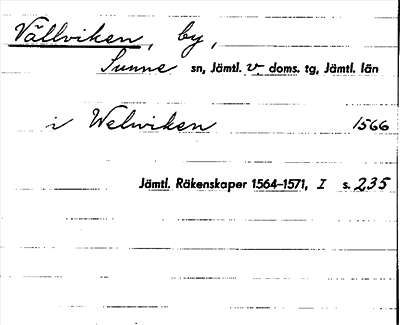 Vällviken, by,
Sunne sn, Jämtl. v. doms. tg, Jämtl. län
i Welwiken 1566
Jämtl. Räkenskaper 1564–1571, I s. 235